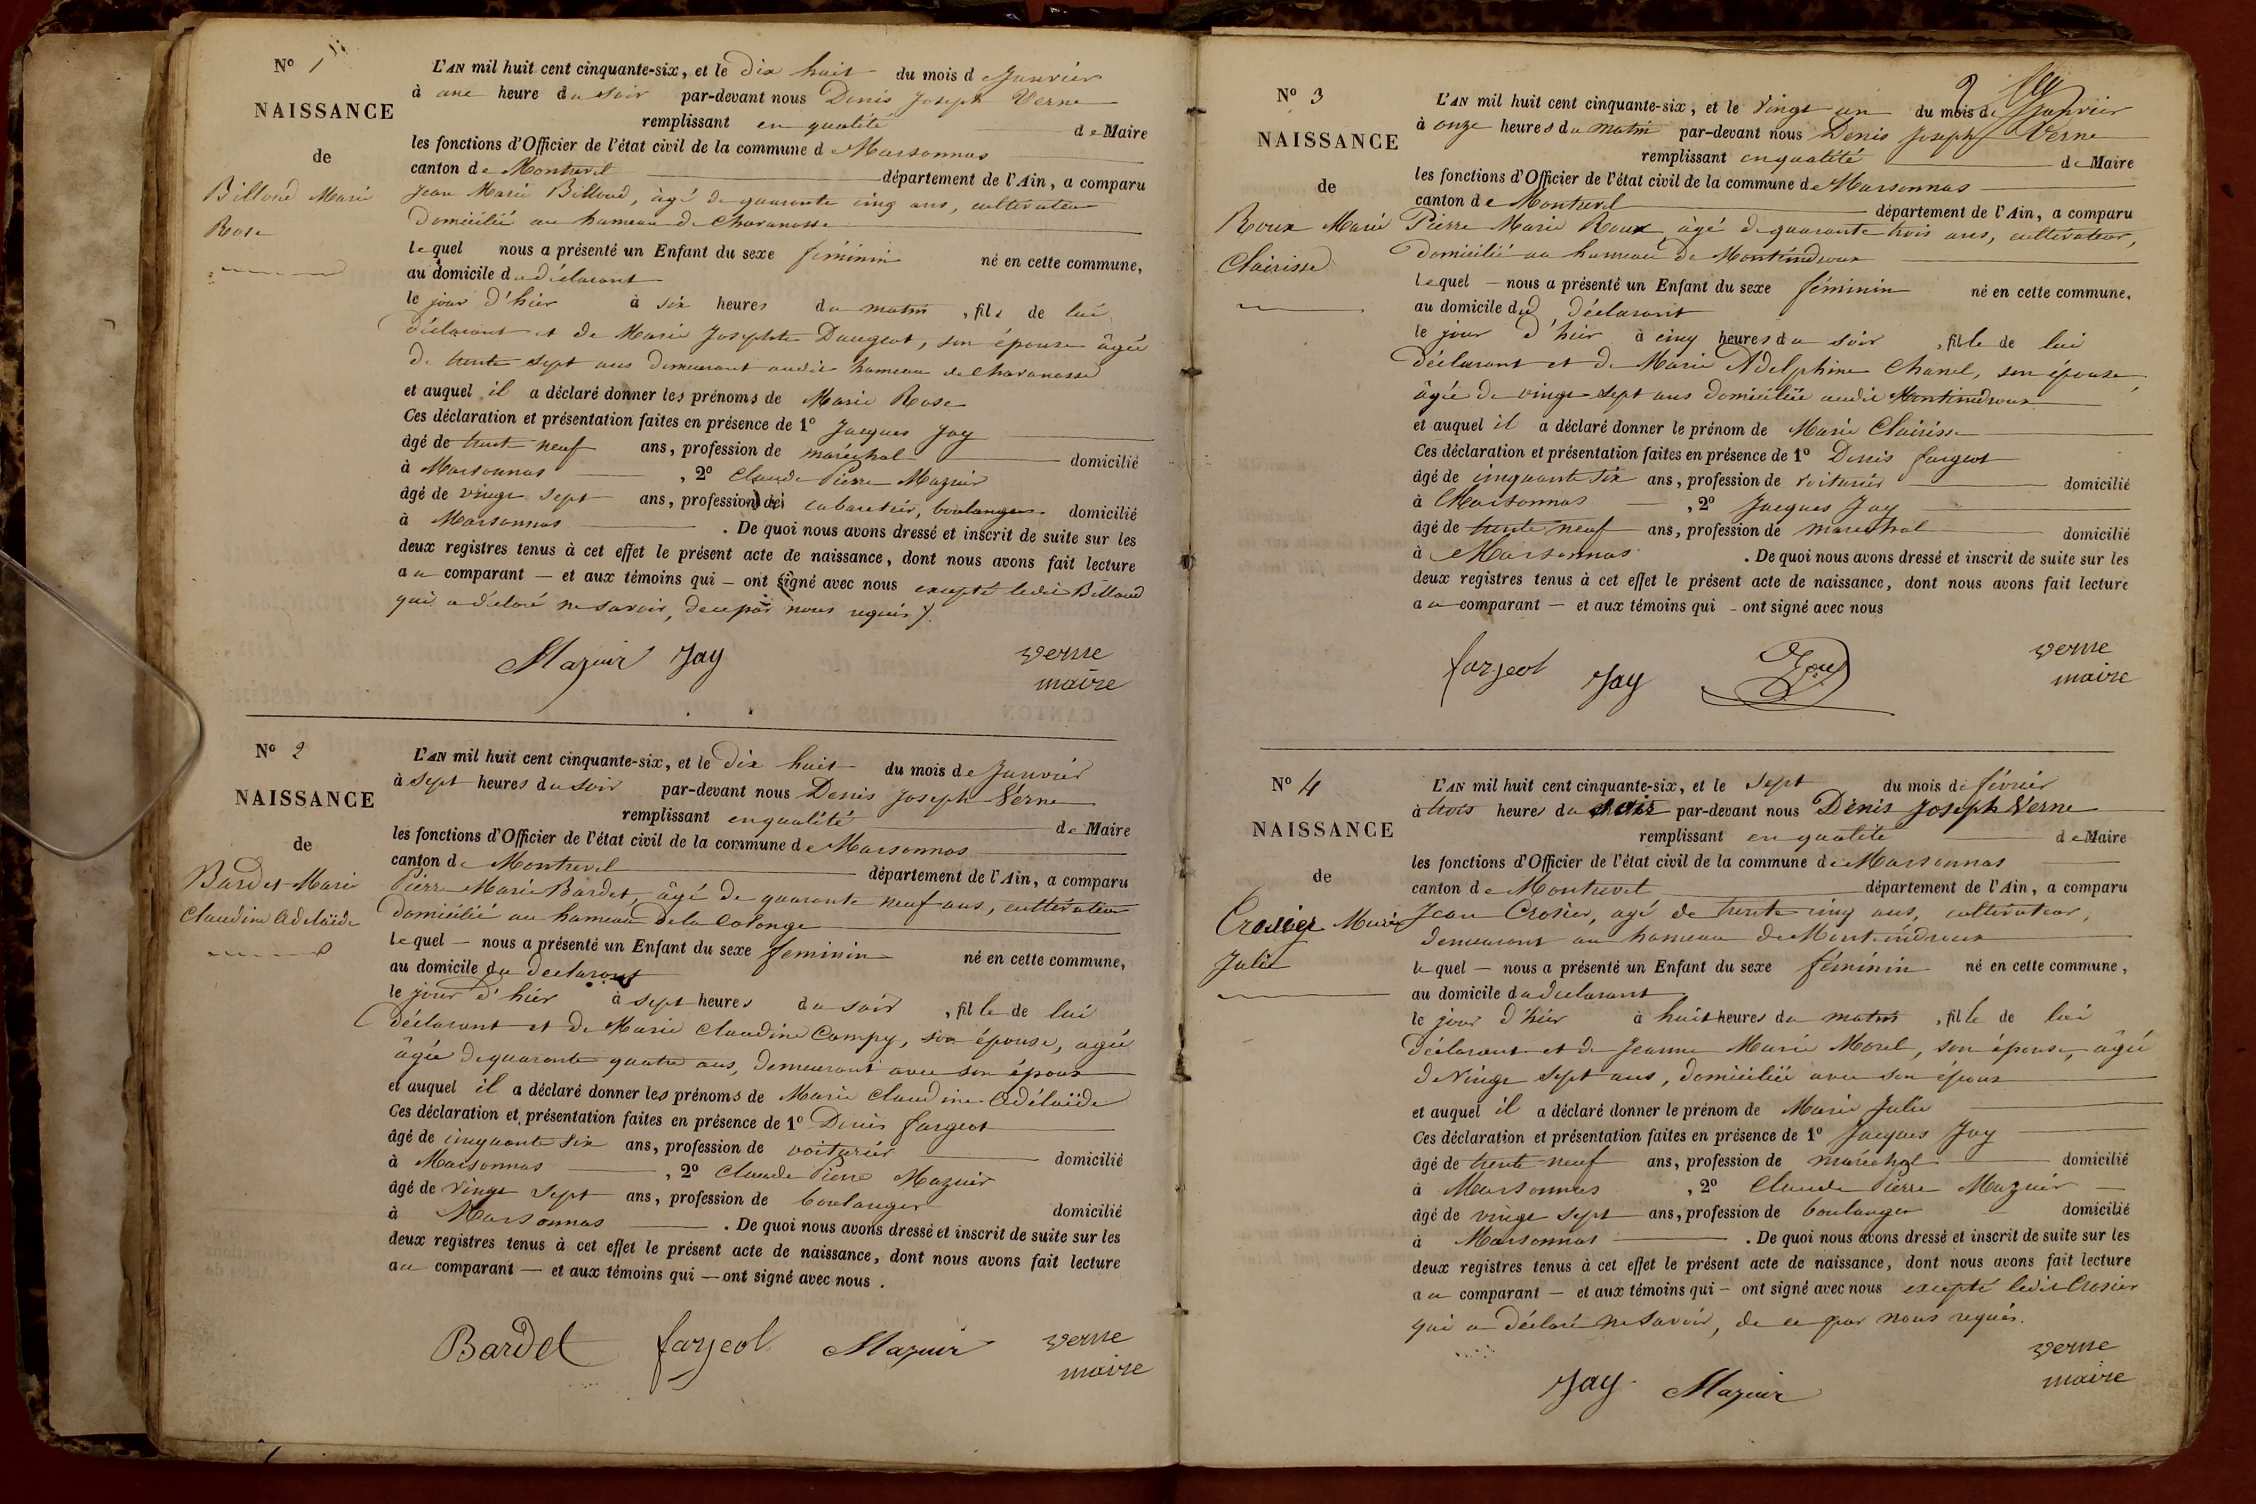 N° 1
NAISSANCE
de
Billoud Marie
Rose
L'AN mil huit cent cinquante-six, et le dix huit du mois de Janvier
à une heure du soir par-devant nous Denis Joseph Verne
remplissant en qualité de Maire
les fonctions d'Officier de l'état civil de la commune de Marsonnas
canton de Montrevel département de l'Ain, a comparu
Jean Marie Billoud, âgé de quarante cinq ans, cultivateur
domicilié au hameau de Charanasse
lequel nous a présenté un Enfant du sexe féminin né en cette commune,
au domicile du déclarant
le jour d'hier à six heures du matin, fil de lui
déclarant et de Marie Josephte Daugeot, son épouse âgée
de trente sept ans demeurant audit hameau de Charanasse
et auquel il a déclaré donner les prénoms de Marie Rose
Ces déclaration et présentation faites en présence de 1° Jacques Jay
âgé de trente neuf ans, profession de maréchal domicilié
à Marsonnas, 2° Claude Pierre Mazuir
âgé de vingt sept ans, profession de cabaretier, boulanger domicilié
à Marsonnas. De quoi nous avons dressé et inscrit de suite sur les
deux registres tenus à cet effet le présent acte de naissance, dont nous avons fait lecture
au comparant — et aux témoins qui — ont signé avec nous excepté ledit Billoud
qui a déclaré ne savoir, de ce par nous requis.
Mazuir Jay verne
maire
N° 2
NAISSANCE
de
Bardet Marie
Claudine Adelaïde
L'AN mil huit cent cinquante-six, et le dix huit du mois de Janvier
à sept heures du soir par-devant nous Denis Joseph Verne
remplissant en qualité de Maire
les fonctions d'Officier de l'état civil de la commune de Marsonnas
canton de Montrevel département de l'Ain, a comparu
Pierre Marie Bardet, âgé de quarante neuf ans, cultivateur
domicilié au hameau de la Colonge
lequel — nous a présenté un Enfant du sexe feminin né en cette commune,
au domicile du declarant
le jour d'hier à sept heures du soir, fille de lui
déclarant et de Marie Claudine Campy, son épouse, agée
âgée de quarante quatre ans, demeurant avec son époux
et auquel il a déclaré donner les prénoms de Marie Claudine Adélaïde
Ces déclaration et présentation faites en présence de 1° Denis fargeot
âgé de cinquante six ans, profession de voiturier domicilié
à Marsonnas, 2° Claude Pierre Mazuir
âgé de vingt sept ans, profession de boulanger domicilié
à Marsonnas. De quoi nous avons dressé et inscrit de suite sur les
deux registres tenus à cet effet le présent acte de naissance, dont nous avons fait lecture
au comparant — et aux témoins qui — ont signé avec nous.
Bardet farjeot Mazuir verne
maire
2
N° 3
NAISSANCE
de
Roux Marie
Clairisse
L'AN mil huit cent cinquante-six, et le vingt un du mois de Janvier
à onze heures du matin par-devant nous Denis Joseph Verne
remplissant en qualité de Maire
les fonctions d'Officier de l'état civil de la commune de Marsonnas
canton de Montrevel département de l'Ain, a comparu
Pierre Marie Roux, âgé de quarante trois ans, cultivateur,
domicilié au hameau de Montindroux
lequel — nous a présenté un Enfant du sexe féminin né en cette commune,
au domicile du déclarant
le jour d'hier à cinq heures du soir, fille de lui
déclarant et de Marie Adelphine Chanel, son épouse,
âgée de vingt sept ans domiciliée audit Montindroux
et auquel il a déclaré donner le prénom de Marie Clairisse
Ces déclaration et présentation faites en présence de 1° Denis fargeot
âgé de cinquante six ans, profession de voiturier domicilié
à Marsonnas, 2° Jacques Jay
âgé de trente neuf ans, profession de maréchal domicilié
à Marsonnas. De quoi nous avons dressé et inscrit de suite sur les
deux registres tenus à cet effet le présent acte de naissance, dont nous avons fait lecture
au comparant — et aux témoins qui — ont signé avec nous
farjeot Jay Roux verne
maire
N° 4
NAISSANCE
de
Crosier Marie
Julie
L'AN mil huit cent cinquante-six, et le sept du mois de février
à trois heures du soir par-devant nous Denis Joseph Verne
remplissant en qualité de Maire
les fonctions d'Officier de l'état civil de la commune de Marsonnas
canton de Montrevel département de l'Ain, a comparu
Jean Crosier, agé de trente cinq ans, cultivateur,
demeurant au hameau de Montindroux
lequel — nous a présenté un Enfant du sexe féminin né en cette commune,
au domicile du declarant
le jour d'hier à huit heures du matin, fille de lui
déclarant et de Jeanne Marie Morel, son épouse, âgée
de vingt sept ans, domiciliée avec son époux
et auquel il a déclaré donner le prénom de Marie Julie
Ces déclaration et présentation faites en présence de 1° Jacques Jay
âgé de trente neuf ans, profession de maréchal domicilié
à Marsonnas, 2° Claude Pierre Mazuir
âgé de vingt sept ans, profession de boulanger domicilié
à Marsonnas. De quoi nous avons dressé et inscrit de suite sur les
deux registres tenus à cet effet le présent acte de naissance, dont nous avons fait lecture
au comparant — et aux témoins qui — ont signé avec nous excepté ledit Crosier
qui a déclaré ne savoir, de ce par nous requis.
Jay Mazuir verne
maire